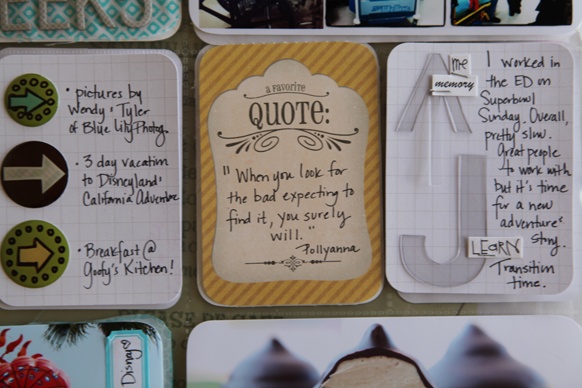 EEKS
• pictures by
Wendy & Tyler
of Blue Lily Photog.
• 3 day vacation
to Disneyland &
California Adventure
• Breakfast @
Goofy's Kitchen!
a FAVORITE
QUOTE:
"When you look for
the bad expecting to
find it, you surely
will."
Pollyanna
me
memory
LEARN
I worked in
the ED on
Superbowl
Sunday. Overall,
pretty slow.
Great people
to work with
but it's time
for a new
adventure &
story.
Transition
time.
Disney